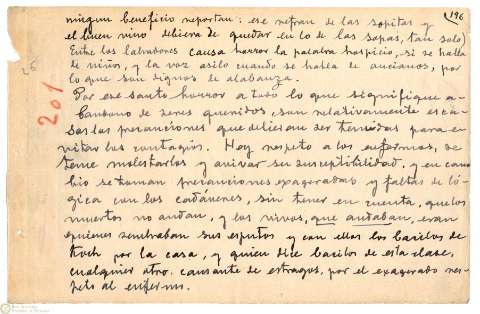 ningun beneficio reportan: ese refran de las sopitas y
el buen vino debiera de quedar en lo de las sopas, tan solo)
196
Entre los labradores causa horror la palabra hospicio, si se habla
de niños, y la voz asilo cuando se habla de ancianos, por
lo que son dignos de alabanza.
26
201
Por ese santo horror a todo lo que signifique a-
bandono de seres queridos, son relativamente esca-
sas las precauciones que debieran ser tomadas para e-
vitar los contagios. Hay respeto a los enfermos, se
teme molestarlos y avivar su susceptibilidad, y en cam-
bio se toman precauciones exageradas y faltas de ló-
gica con los cadáveres, sin tener en cuenta, que los
muertos no andan, y los vivos, que andaban, eran
quienes sembraban sus esputos y con ellos los bacilos de
Koch por la casa, y quien dice bacilos de esta clase,
cualquier otro causante de estragos, por el exagerado res-
peto al enfermo.